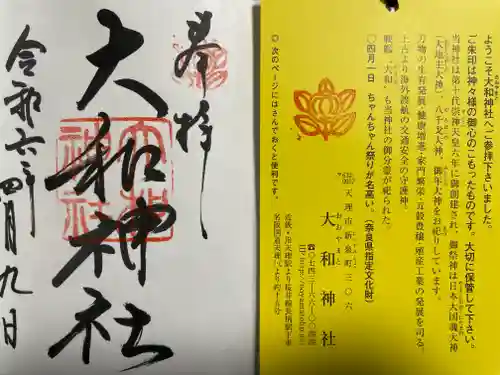 奉拝
大和神社
令和六年四月九日
ようこそ大和神社へご参拝下さいました。
ご朱印は神々様の御心のこもったものです。大切に保管して下さい。
当神社は第十代崇神天皇六年に御創建され、御祭神は日本大国魂大神
(大地主大神)、八千戈大神、御年大神をお祀りしています。
万物の生育発展・健康増進・家門繁栄・五穀豊穣・殖産工業の発展を司る。
上古より海外渡航の交通安全の守護神。
戦艦「大和」も当神社の御分霊が祀られた。
〇四月一日 ちゃんちゃん祭りが名高い。(奈良県指定文化財)
天理市新泉町三〇六
大和神社
おおやまと
◎次のページにはさんでおくと便利です。